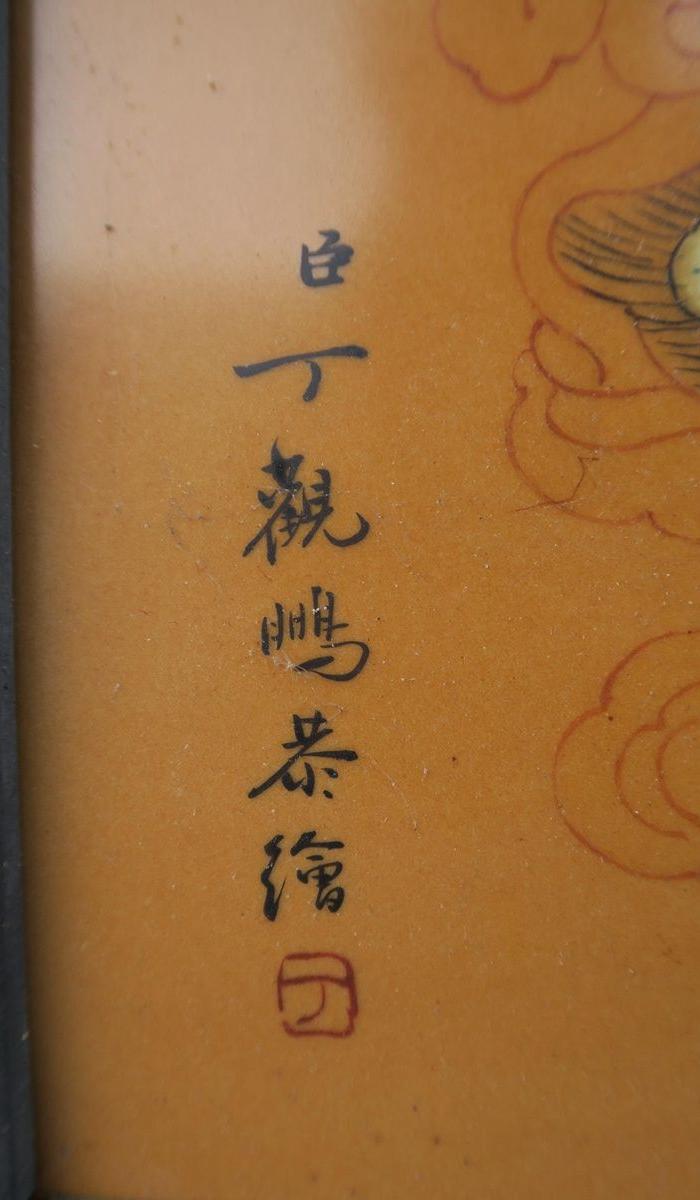 臣丁觀鵬恭繪
丁